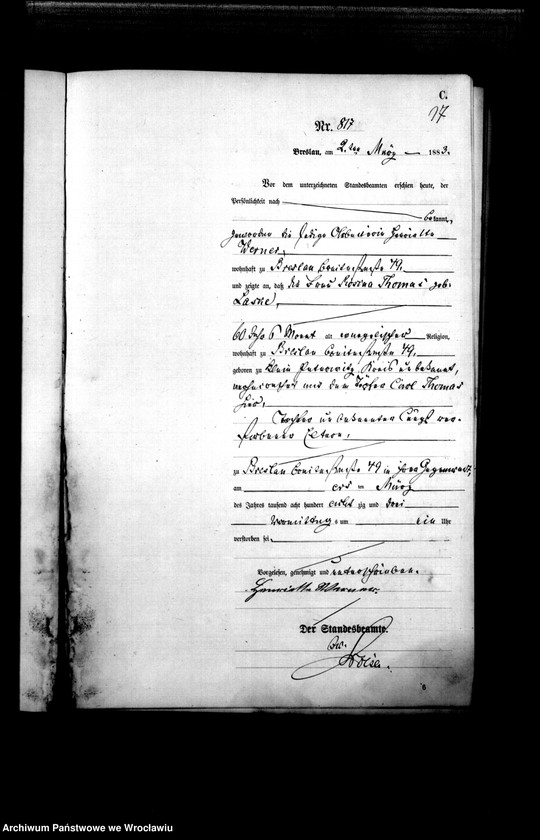 C.
17
Nr. 817
Breslau, am 2. ten März 1883.
Vor dem unterzeichneten Standesbeamten erschien heute, der
Persönlichkeit nach
bekannt,
die ledige Henriette
Werner,
wohnhaft zu Breslau Breitestraße 49,
und zeigte an, daß die Frau Rosina Thomas geb.
Laske,
60 Jahr 6 Monat alt evangelischer Religion,
wohnhaft zu Breslau Breitestraße 49,
geboren zu Klein Peterwitz, Kreis unbekannt,
verheirathet mit dem Carl Thomas
hier,
Tochter unbekannter bereits ver-
storbener Eltern,
zu Breslau Breitestraße 49 in ihrer Gegenwart,
am ersten März
des Jahres tausend acht hundert achtzig und drei
Vormittags um ein Uhr
verstorben sei.
Vorgelesen, genehmigt und unterschrieben.
Henriette Werner.
Der Standesbeamte.
Archiwum Państwowe we Wrocławiu